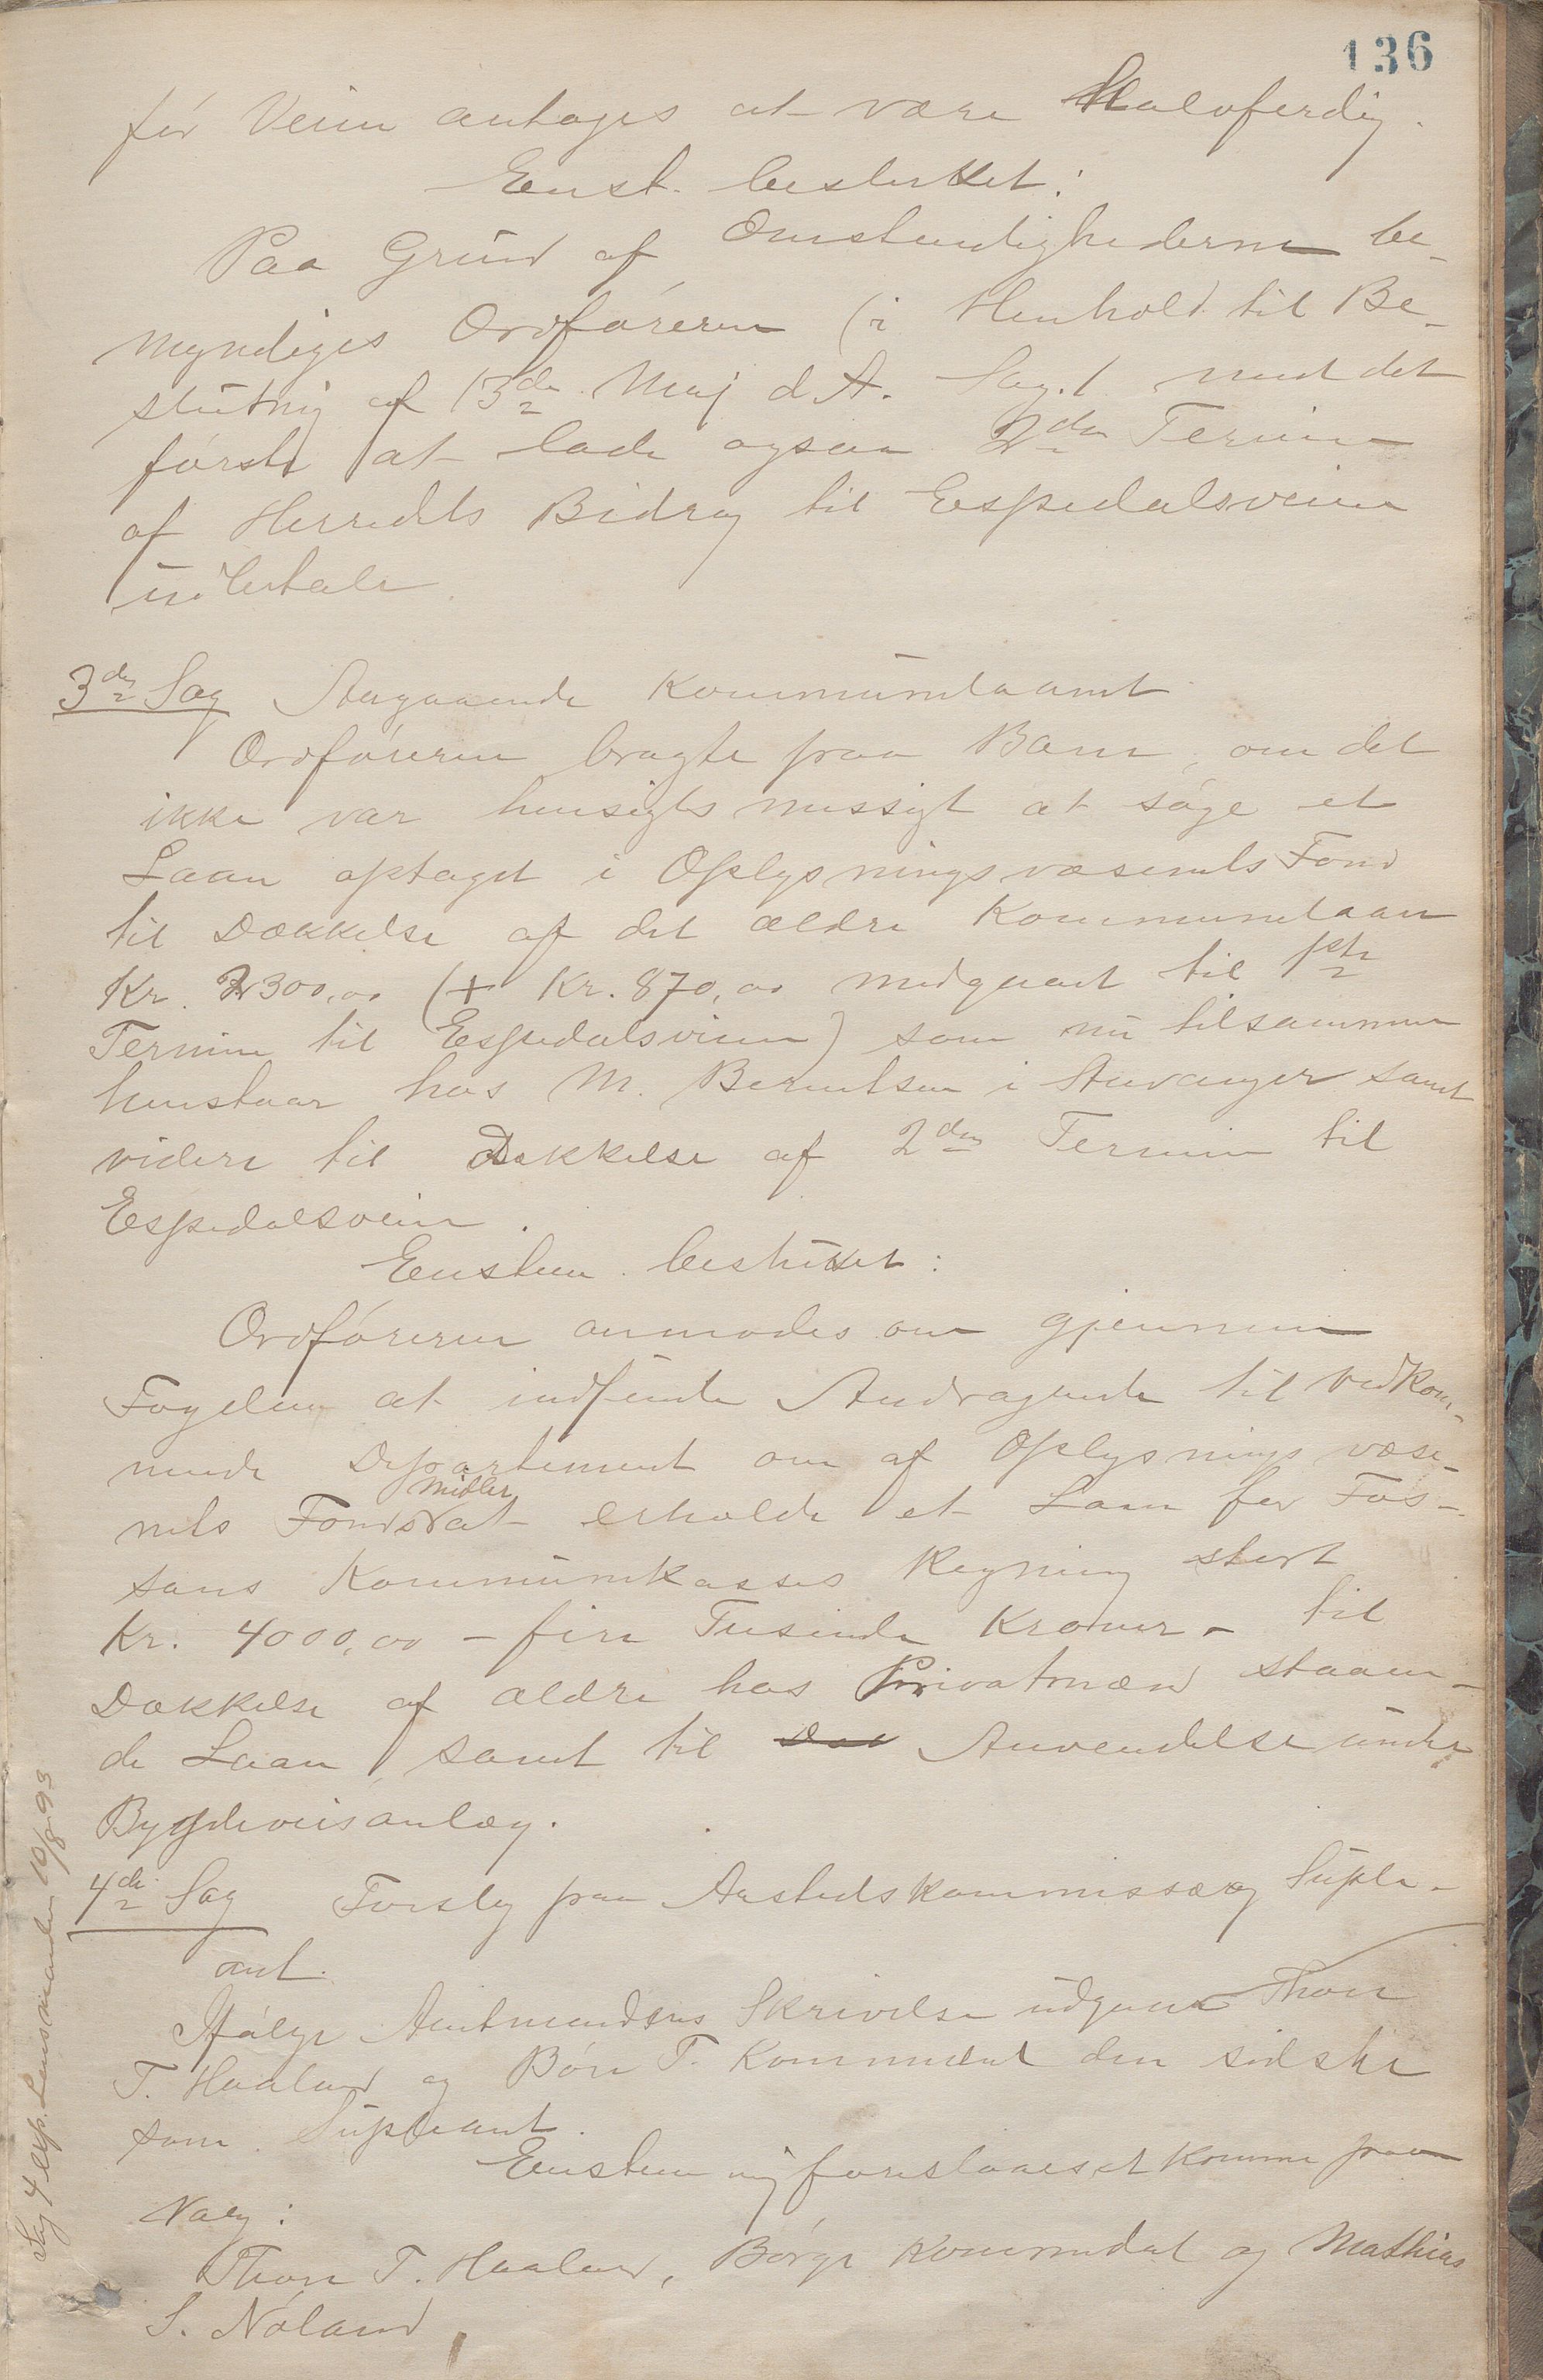 136
før Veien antages at være Halvferdig.
Enst. besluttet:
Paa Grund af Omstendighederne be-
myndiges Ordføreren (i Henhold til Be-
slutnig af 13de Maj d.A. Sag.1 med det
første at lade ogsaa 2den Termin
af Herredets Bidrag til Espedalsveien
udbetale.
3die Sag Angaaende Kommunelaanet
Ordføreren bragte paa Bane, om det
ikke var hensigtsmessigt at søge et
Laan optaget i Oplysningsvæsenets Fond
til Dækkelse af det ældre Kommunelaan
Kr. 2300,00 (+ Kr. 870,00 medgaaet til 1ste
Termin til Espedalsveien) som nu tilsammen
henstaar hos M. Berentsen i Stavanger samt
videre til Dækkelse af 2den Termin til
Espedalsveien.
Enstem. besluttet:
Ordføreren anmodes om gjennem
Fogden at indsende Andragende til vedkom-
mende Departement om af Oplysningsvæse-
nets Fonds midler at erholde et Laan for Fos-
sans Kommunekasses Regning stort
Kr. 4000,00 - fire Tusinde Kroner - til
Dækkelse af ældre hos Privatmænd staaen-
de Laan, samt til Anvendelse under
Bygdeveisanlæg.
4de Sag Forslag paa Aastedskommissær og Suple-
ant.
Ifølge Amtmandens Skrivelse udgaar Thore
T. Haaland og Børe T. Kommedal den sidste
som Supleant.
Enstemmig foreslaaes at komme paa
Valg:
Thore T. Haaland, Børge Kommedal og Mathias
S. Nøland
Sag 4 exp. Lensmanden 10/8 93